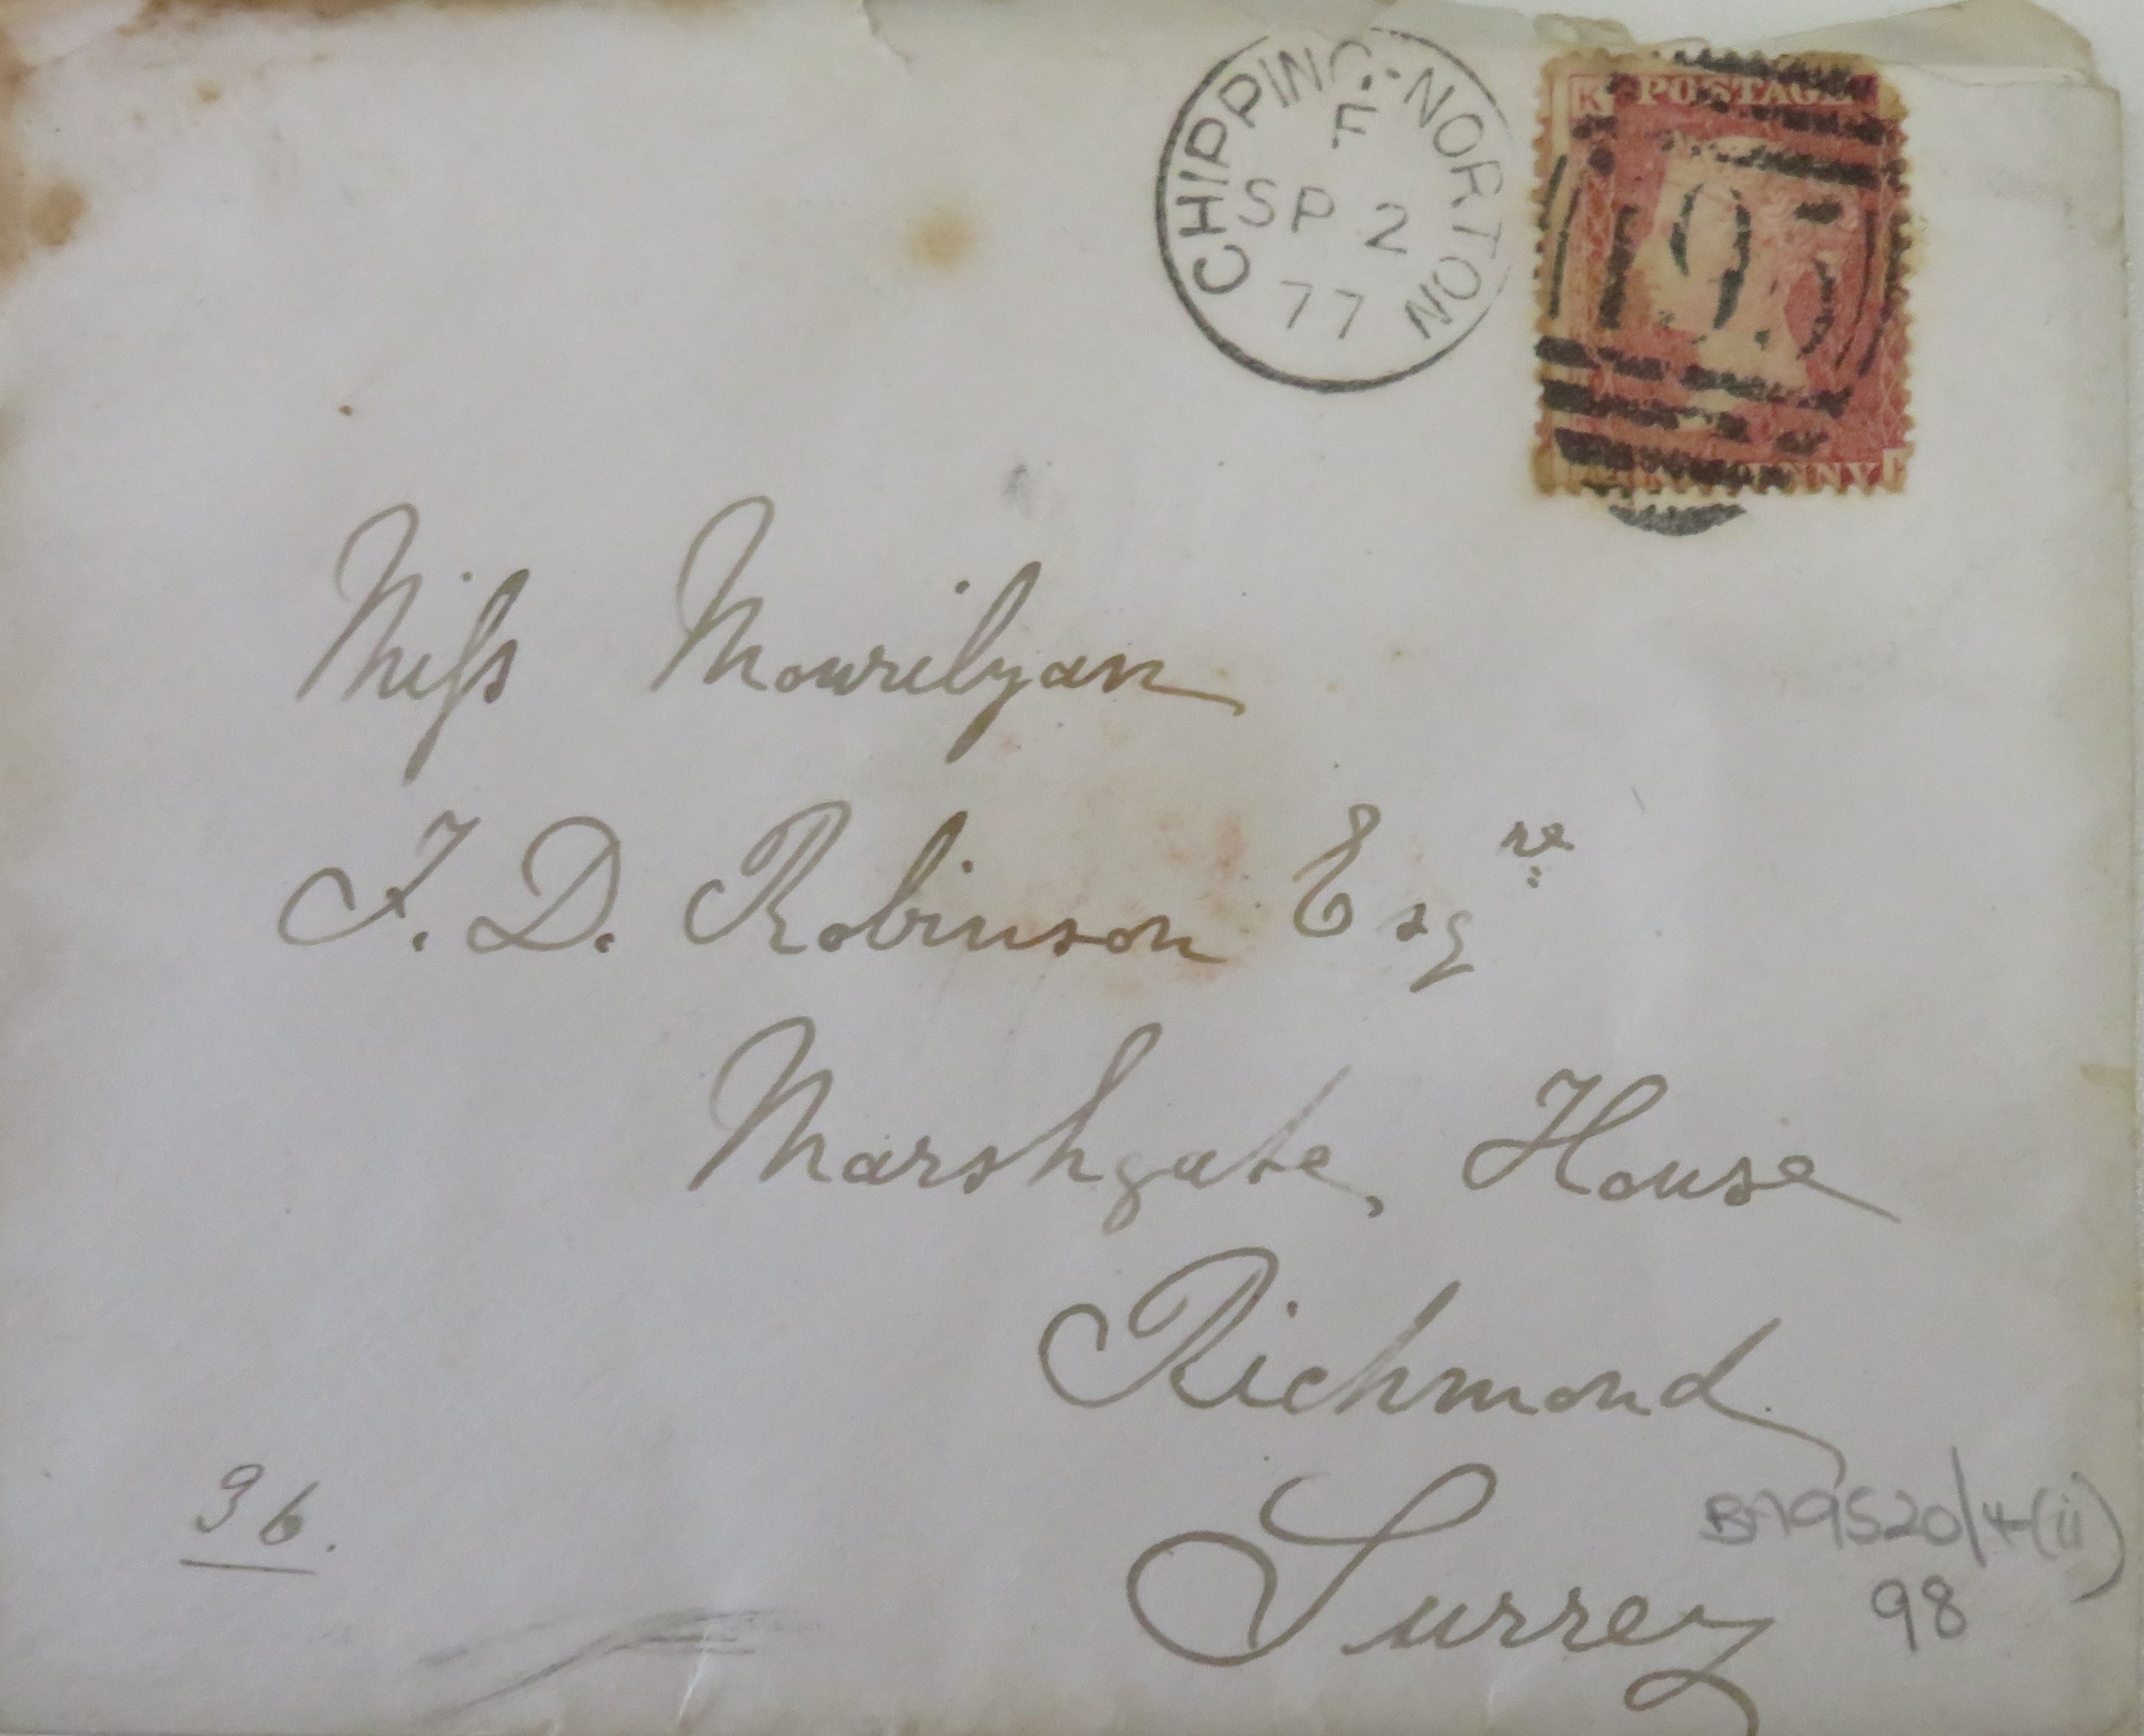 CHIPPING-NORTON
F
SP 2
77
K POSTAGE
195
PENNY
Miss Mourilyan
F. D. Robinson Esqre
Marshgate, House
Richmond
Surrey
36.
98